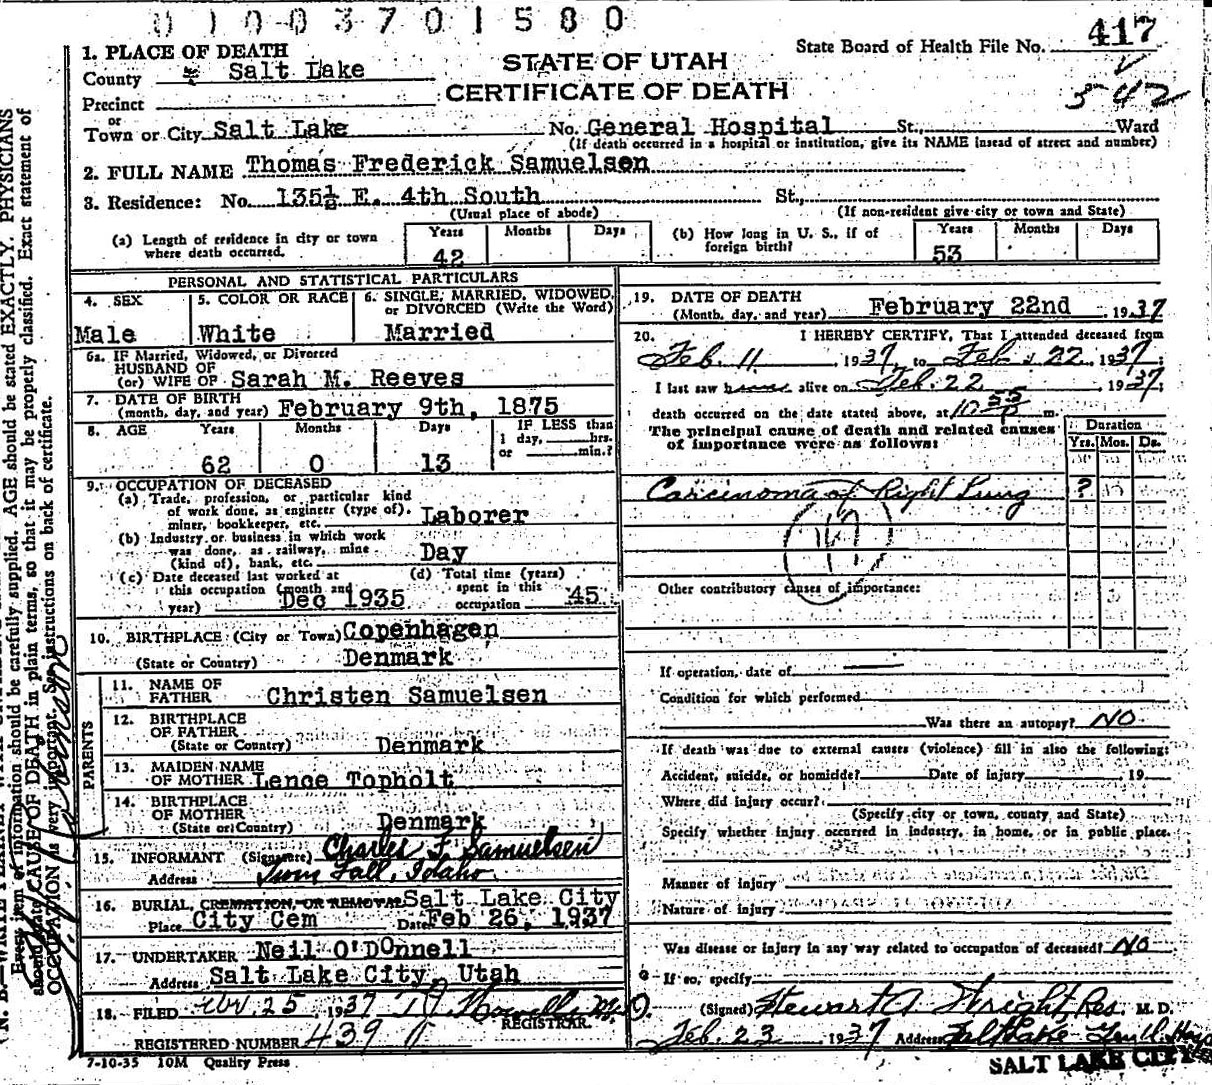 01003701580
1. PLACE OF DEATH
County Salt Lake
STATE OF UTAH
CERTIFICATE OF DEATH
State Board of Health File No. 417
542
Precinct
or
Town or City Salt Lake No. General Hospital St., Ward
(If death occurred in a hospital or institution, give its NAME instead of street and number)
2. FULL NAME Thomas Frederick Samuelsen
3. Residence: No. 135½ E. 4th South St.,
(Usual place of abode) (If non-resident give city or town and State)
(a) Length of residence in city or town where death occurred. Years 42 Months Days
(b) How long in U. S., if of foreign birth? Years 53 Months Days
PERSONAL AND STATISTICAL PARTICULARS
4. SEX 5. COLOR OR RACE 6. SINGLE, MARRIED, WIDOWED, or DIVORCED (Write the Word)
Male White Married
6a. IF Married, Widowed, or Divorced
HUSBAND OF
(or) WIFE OF Sarah M. Reeves
7. DATE OF BIRTH
(month, day, and year) February 9th, 1875
8. AGE Years Months Days IF LESS than
1 day, hrs.
or min.?
62 0 13
9. OCCUPATION OF DECEASED
(a) Trade, profession, or particular kind
of work done, as engineer (type of),
miner, bookkeeper, etc. Laborer
(b) Industry or business in which work
was done, as railway, mine
(kind of), bank, etc. Day
(c) Date deceased last worked at
this occupation (month and
year) Dec 1935
(d) Total time (years)
spent in this
occupation 45
10. BIRTHPLACE (City or Town) Copenhagen
(State or Country) Denmark
PARENTS
11. NAME OF
FATHER Christen Samuelsen
12. BIRTHPLACE
OF FATHER
(State or Country) Denmark
13. MAIDEN NAME
OF MOTHER Lence Topholt
14. BIRTHPLACE
OF MOTHER
(State or Country) Denmark
15. INFORMANT (Signature) Charles F. Samuelsen
Address Twin Fall, Idaho
16. BURIAL, CREMATION, OR REMOVAL Salt Lake City
Place City Cem Date Feb 26, 1937
17. UNDERTAKER Neil O'DOnnell
Address Salt Lake City, Utah
18. FILED 25 1937 M.D.
REGISTRAR.
REGISTERED NUMBER 439
7-10-35 10M Quality Press
19. DATE OF DEATH
(Month, day, and year) February 22nd, 1937
20. I HEREBY CERTIFY, That I attended deceased from
Feb. 11 1937, to Feb. 22, 1937;
I last saw alive on Feb. 22, 1937;
death occurred on the date stated above, at 10 55 p m.
The principal cause of death and related causes
of importance were as follows:
Duration
Yrs. Mos. Ds.
Carcinoma of Right Lung ?
Other contributory causes of importance:
If operation, date of
Condition for which performed
Was there an autopsy? NO
If death was due to external causes (violence) fill in also the following:
Accident, suicide, or homicide? Date of injury 19
Where did injury occur?
(Specify city or town, county and State)
Specify whether injury occurred in industry, in home, or in public place.
Manner of injury
Nature of injury
Was disease or injury in any way related to occupation of deceased? NO
If so, specify
(Signed) Stewart A. Wright, Res. M. D.
Feb. 23 1937 Address Salt Lake
SALT LAKE CITY
Every item of information should be carefully supplied. AGE should be stated EXACTLY. PHYSICIANS
should state CAUSE OF DEATH in plain terms, so that it may be properly classified. Exact statement of
OCCUPATION is very important. See instructions on back of certificate.